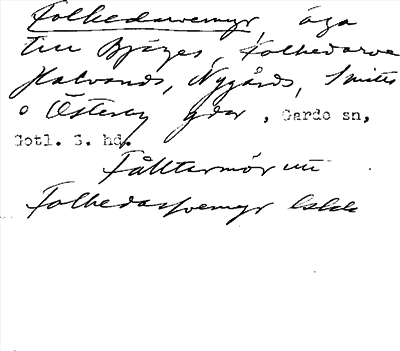 Folkedarvemyr, äga
till Bjärges, Folkedarve
Halvands, Nygårds, Smiss
o Österby gdar, Gardo sn,
Gotl. S. hd.
Fälttermör
Folkedarvemyr